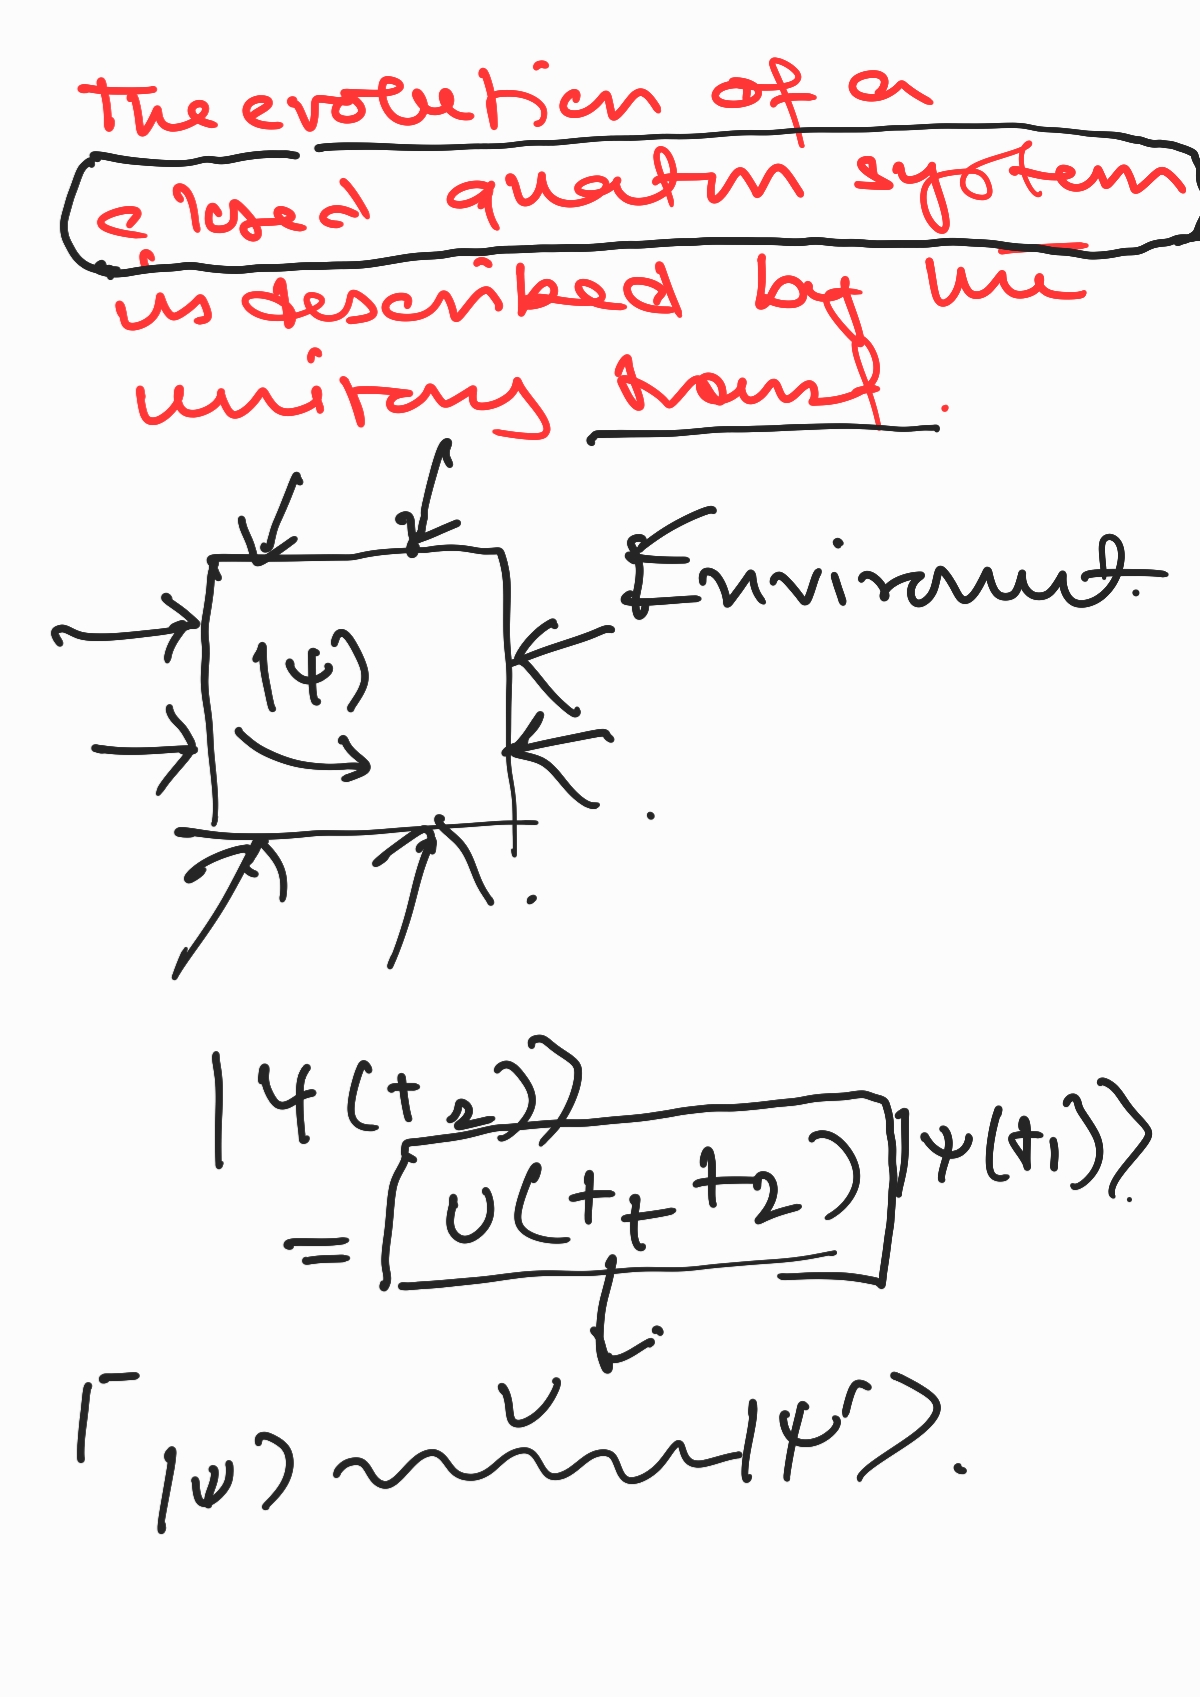 The evolution of a
closed quantum system
is described by the
unitary transf.
Environment.
|ψ⟩
|ψ(t₂)⟩
= U(t₁ t₂) |ψ(t₁)⟩.
U
|ψ⟩ |ψ'⟩.